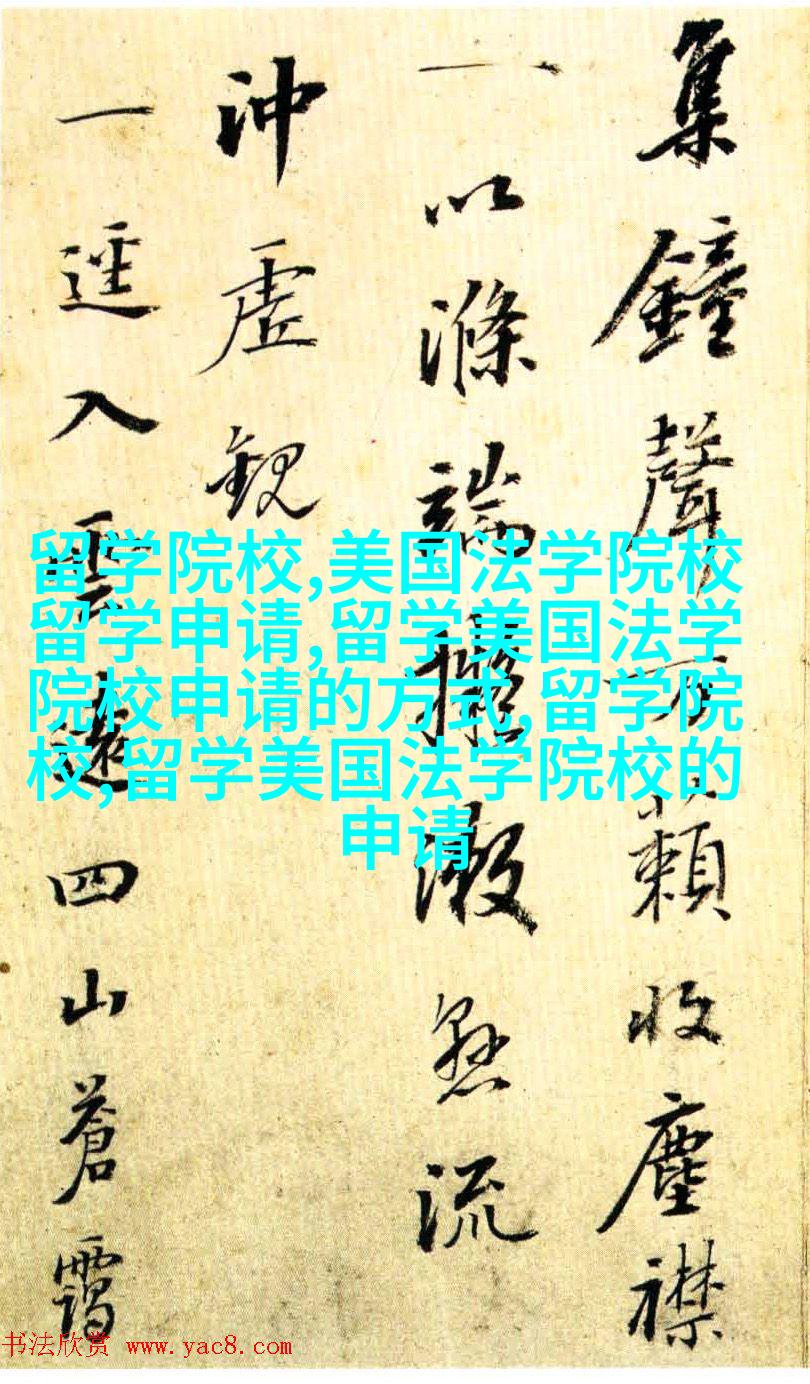 集鐘聲万籟收塵襟
一以滌端擬漱流
沖虛觀
一逕入雲四山蒼靄
留学院校,美国法学院校
留学申请,留学美国法学
院校申请的方式,留学院
校,留学美国法学院校的
申请
书法欣赏 www.yac8.com